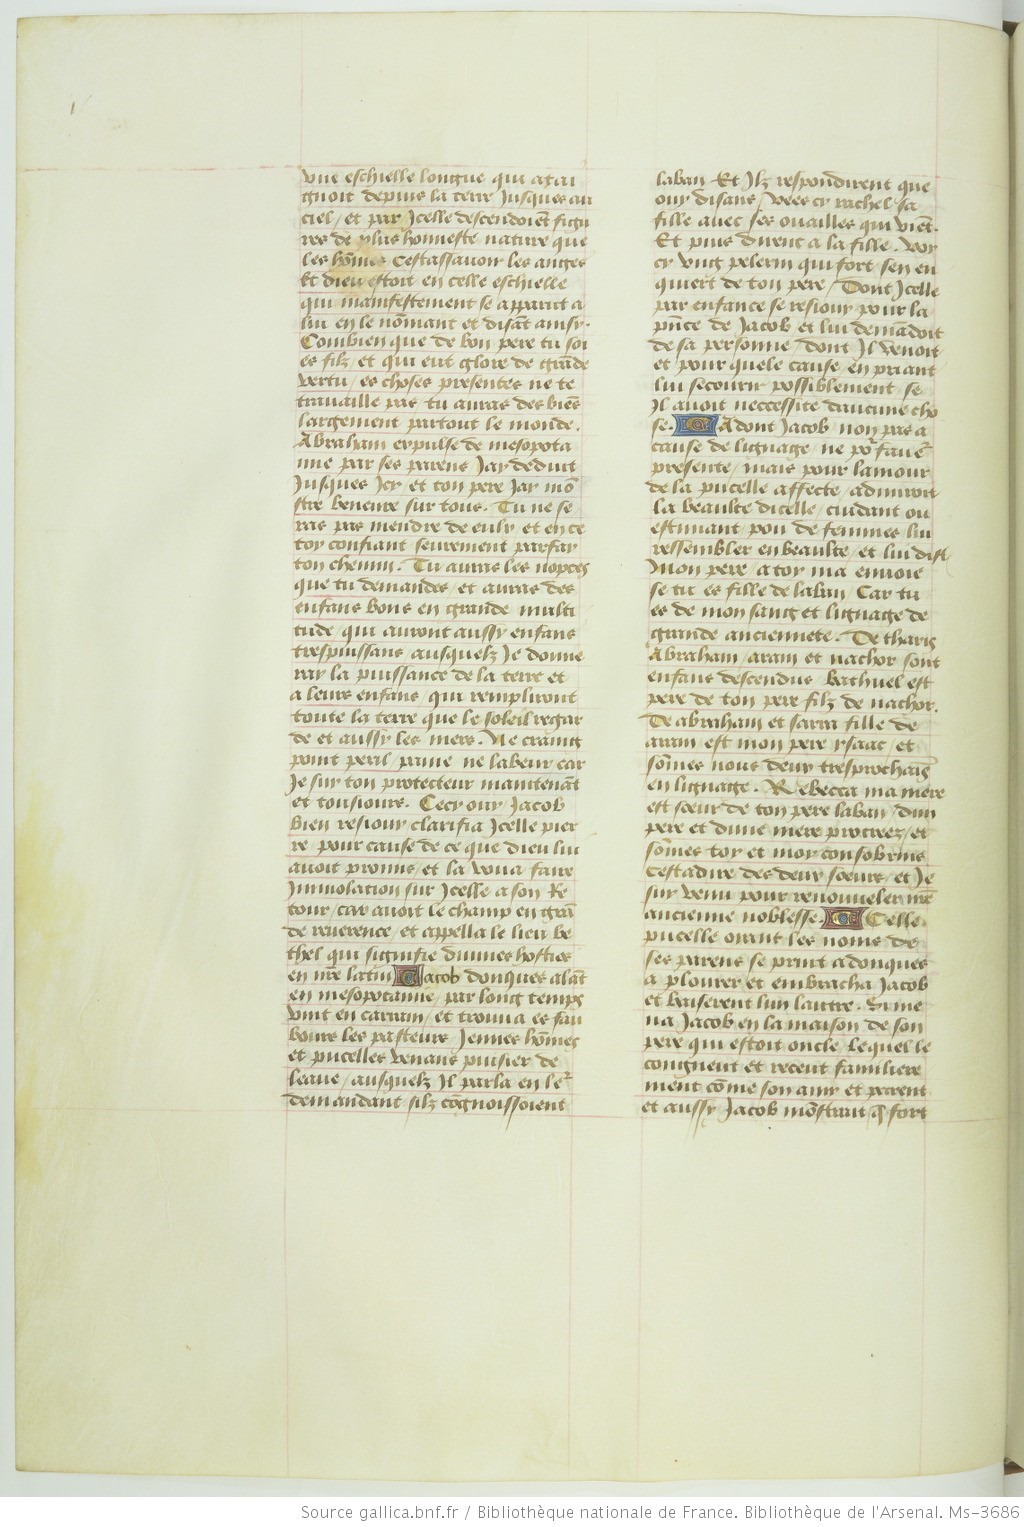 vne eschielle longue qui atai
gnoit depuis la terre Jusques au
ciel / et par Jcelle descendoiēt figu
res de plus honneste nature que
les hōmes Cestassauoir les anges
Et dieu estoit en celle eschielle
qui manifestement se apparut a
lui en le nōmant et disāt ainsy.
Combien que de bon pere tu soi
es filz / et qui eut glore de grāde
vertu / es choses presentes ne te
trauaille pas tu auras des biēs
largement partout le monde.
Abraham expulse de mesopota
mie par ses parens Jay deduit
Jusques Jcy et ton pere Jay mō
stre beneure sur tous. Tu ne se
ras pas mendre de eulx et en ce
toy confiant seurement parfay
ton chemin. Tu auras les nopces
que tu demandes / et auras des
enfans bons en grande multi
tude / qui auront aussy enfans
trespuissans ausquelz Je donne
ray la puissance de la terre et
a leurs enfans qui rempliront
toute la terre que le soleil regar
de et aussy les mers. Ne craing
point peril / paine ne labeur car
Je suy ton protecteur maintenāt
et tousiours. Cecy ouy Jacob
bien resiouy clarifia Jcelle pier
re pour cause de ce que dieu lui
auoit promis / et la voua faire
Jmmolation sur Jcelle a son Re
tour / car auoit le champ en grā
de reuerence / et appella le lieu be
thel qui signifie diuines hosties
en nr̄e latin Jacob donques alāt
en mesopotamie / par long temps
vint en carram / et trouua es fau
bours les pasteurs Jennes hōmes
et pucelles venans puisier de
leaue / ausquelz Jl parla en le⁊
demandant silz cōgnoissoient
laban Et Jlz respondirent que
ouy disans / Vees cy rachel sa
fille auec ses ouailles qui viēt.
Et puis dirent a la fille. Voy
cy vng pelerin qui fort sen en
quiert de ton pere / Dont Jcelle
par enfance se resiouy pour la
pn̄ce de Jacob et lui demādoit
de sa personne / dont Jl venoit
et pour quele cause / en priant
lui secourir possiblement / se
Jl auoit neccessite daucune cho
se. Adont Jacob non pas a
cause de lignage / ne po⁊ fauē⁊
presente / mais pour lamour
de la pucelle affecte / admiroit
la beaulte dicelle / cuidant ou
estimant pou de femmes lui
ressembler en beaulte / et lui dist
Mon pere / a toy ma enuoie
se tu es fille de laban Car tu
es de mon sang et lignage de
grande anciennete. De thares
Abraham / aram et nachor sont
enfans descendus Bathuel est
pere de ton pere filz de nachor.
De abraham et sarra fille de
aram est mon pere ysaac / et
sōmes nous deux tresprochais
en lignage. Rebecca ma mere
est soeur de ton pere laban / dun
pere et dune mere procreez / et
sōmes toy et moy consobrins
Cestadire des deux soeurs / et Je
suy venu pour renouueler nr̄e
ancienne noblesse. Celle
pucelle oiant les noms de
ses parens se print adonques
a plourer et embracha Jacob
et baiserent lun lautre. Si me
na Jacob en la maison de son
pere qui estoit oncle / lequel le
congneut et receut familiere
ment cōme son amy et parent
et aussy Jacob mōstrait q̄ fort
Source gallica.bnf.fr / Bibliothèque nationale de France. Bibliothèque de l'Arsenal. Ms-3686